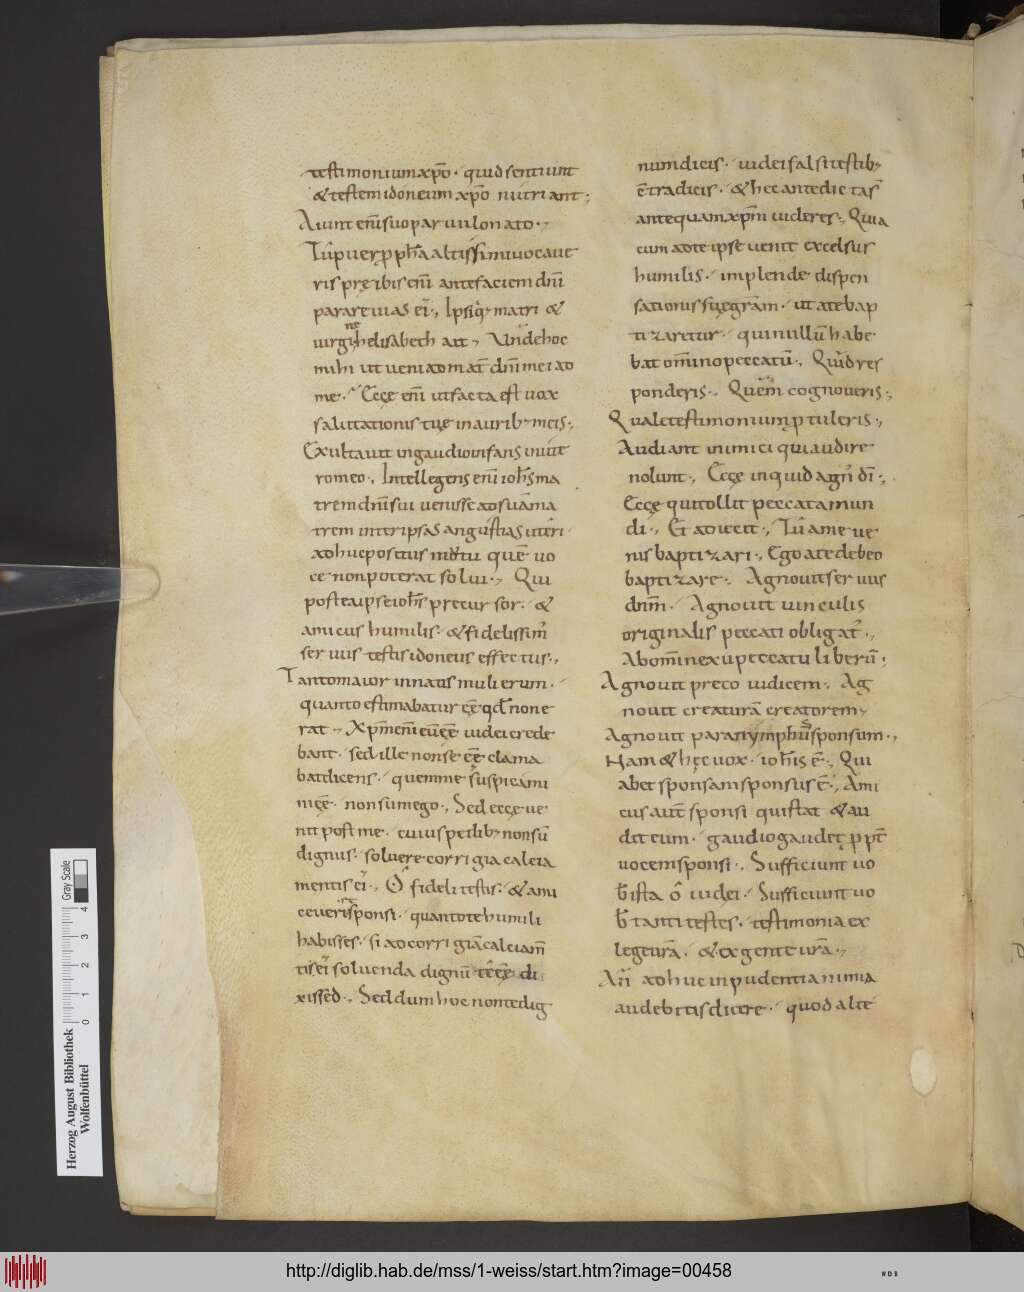 testimoniumxp̄o· quidsentiunt
&testemidoneumxp̄o nutriant·;
Aiunt enīsuoparuulonato·,
Tūpuerpph̄aaltissimiuocaue
rispręibisenī antefaciemdnī
parareuias eī·, Ipsiq· matri &
uirginehelisabeth ait, Undehoc
mihi utueniadmat̄ dnīmeiad
me·, Ecce enī utfactaest uox
salutationistuę inaurib; meis·,
Exultauit ingaudioinfansinute
romeo·, Intellegens enī ioh̄sma
tremdnīsui uenisse adsuāma
trem interipsas angustias uteri
adhucpositus motu quē uo
ce nonpoterat solui·, Qui
posteaipseioh̄s precursor· &
amicus humilis· &fidelissim̄
seruus testisidoneus effectus·,
Tantomaior innatis mulierum·
quanto estimabatur eē qd̄ none
rat, Xpm̄enī eūeē iudei crede
bant· sedille nonse eē clama
batdicens· quemme suspicami
nieē· nonsumego·, Sed ecce ue
nit post me· cuiuspedib; nonsū
dignus· soluere corrigia calcia
mentis eī·, O fideli testis· & ami
ceuerisponsi· quantote humili
habisses· si adcorrigiācalciam̄
tis eī soluenda dignū teeē di
xissed·, Sed dum hoc nontedig
numdicis· iudeifalsitestib;
ētradicis· &hec antedictas̄
antequamxpm̄ uideres·, Quia
cum adteipse uenit excelsus
humilis· implende dispen
sationissuęgrām· ut atebap
tizaretur· quinullū habe
bat om̄inopeccatū·, Quid res
ponderis·, Quēm cognoueris·,
Qualetestimoniump tuleris·,
Audiant inimici quiaudire
nolunt·, Ecce inquid agn̄ dī·,
Ecce quitollit peccatamun
di·, Et adiecit·, Tū ame ue
nis baptizari·, Ego ate debeo
baptizare·, Agnouitseruus
dnm̄· Agnouit uinculis
originalis peccati obligat̄·,
Abom̄inexupeccatu liberū·,
Agnouit preco iudicem·, Ag
nouit creaturā creatorem,
Agnouit paranymphussponsum·,
Nam&hęcuox· ioh̄is ē·, Qui
abet sponsamsponsus ē·, Ami
cus aut̄ sponsi quistat &au
dit eum· gaudiogaudet ppt̄
uocemsponsi·, Sufficiunt uo
b̄ ista o iudei· Sufficiunt uo
b̄ tanti testes· testimonia ex
legeurā· & exgente urā·,
An̄ adhuc inpudentia nimia
audebitisdicere· quod alte
Gray Scale
0 1 2 3 4
Herzog August Bibliothek
Wolfenbüttel
http://diglib.hab.de/mss/1-weiss/start.htm?image=00458